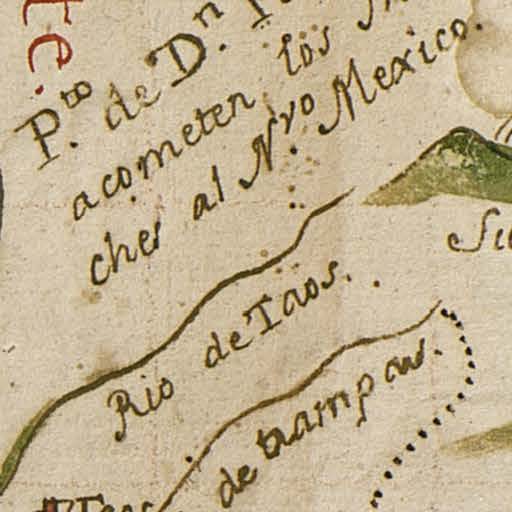 te.
P.to de D.n
acometen los
ches al N.vo Mexico.
Rio de Taos.
de trampas.